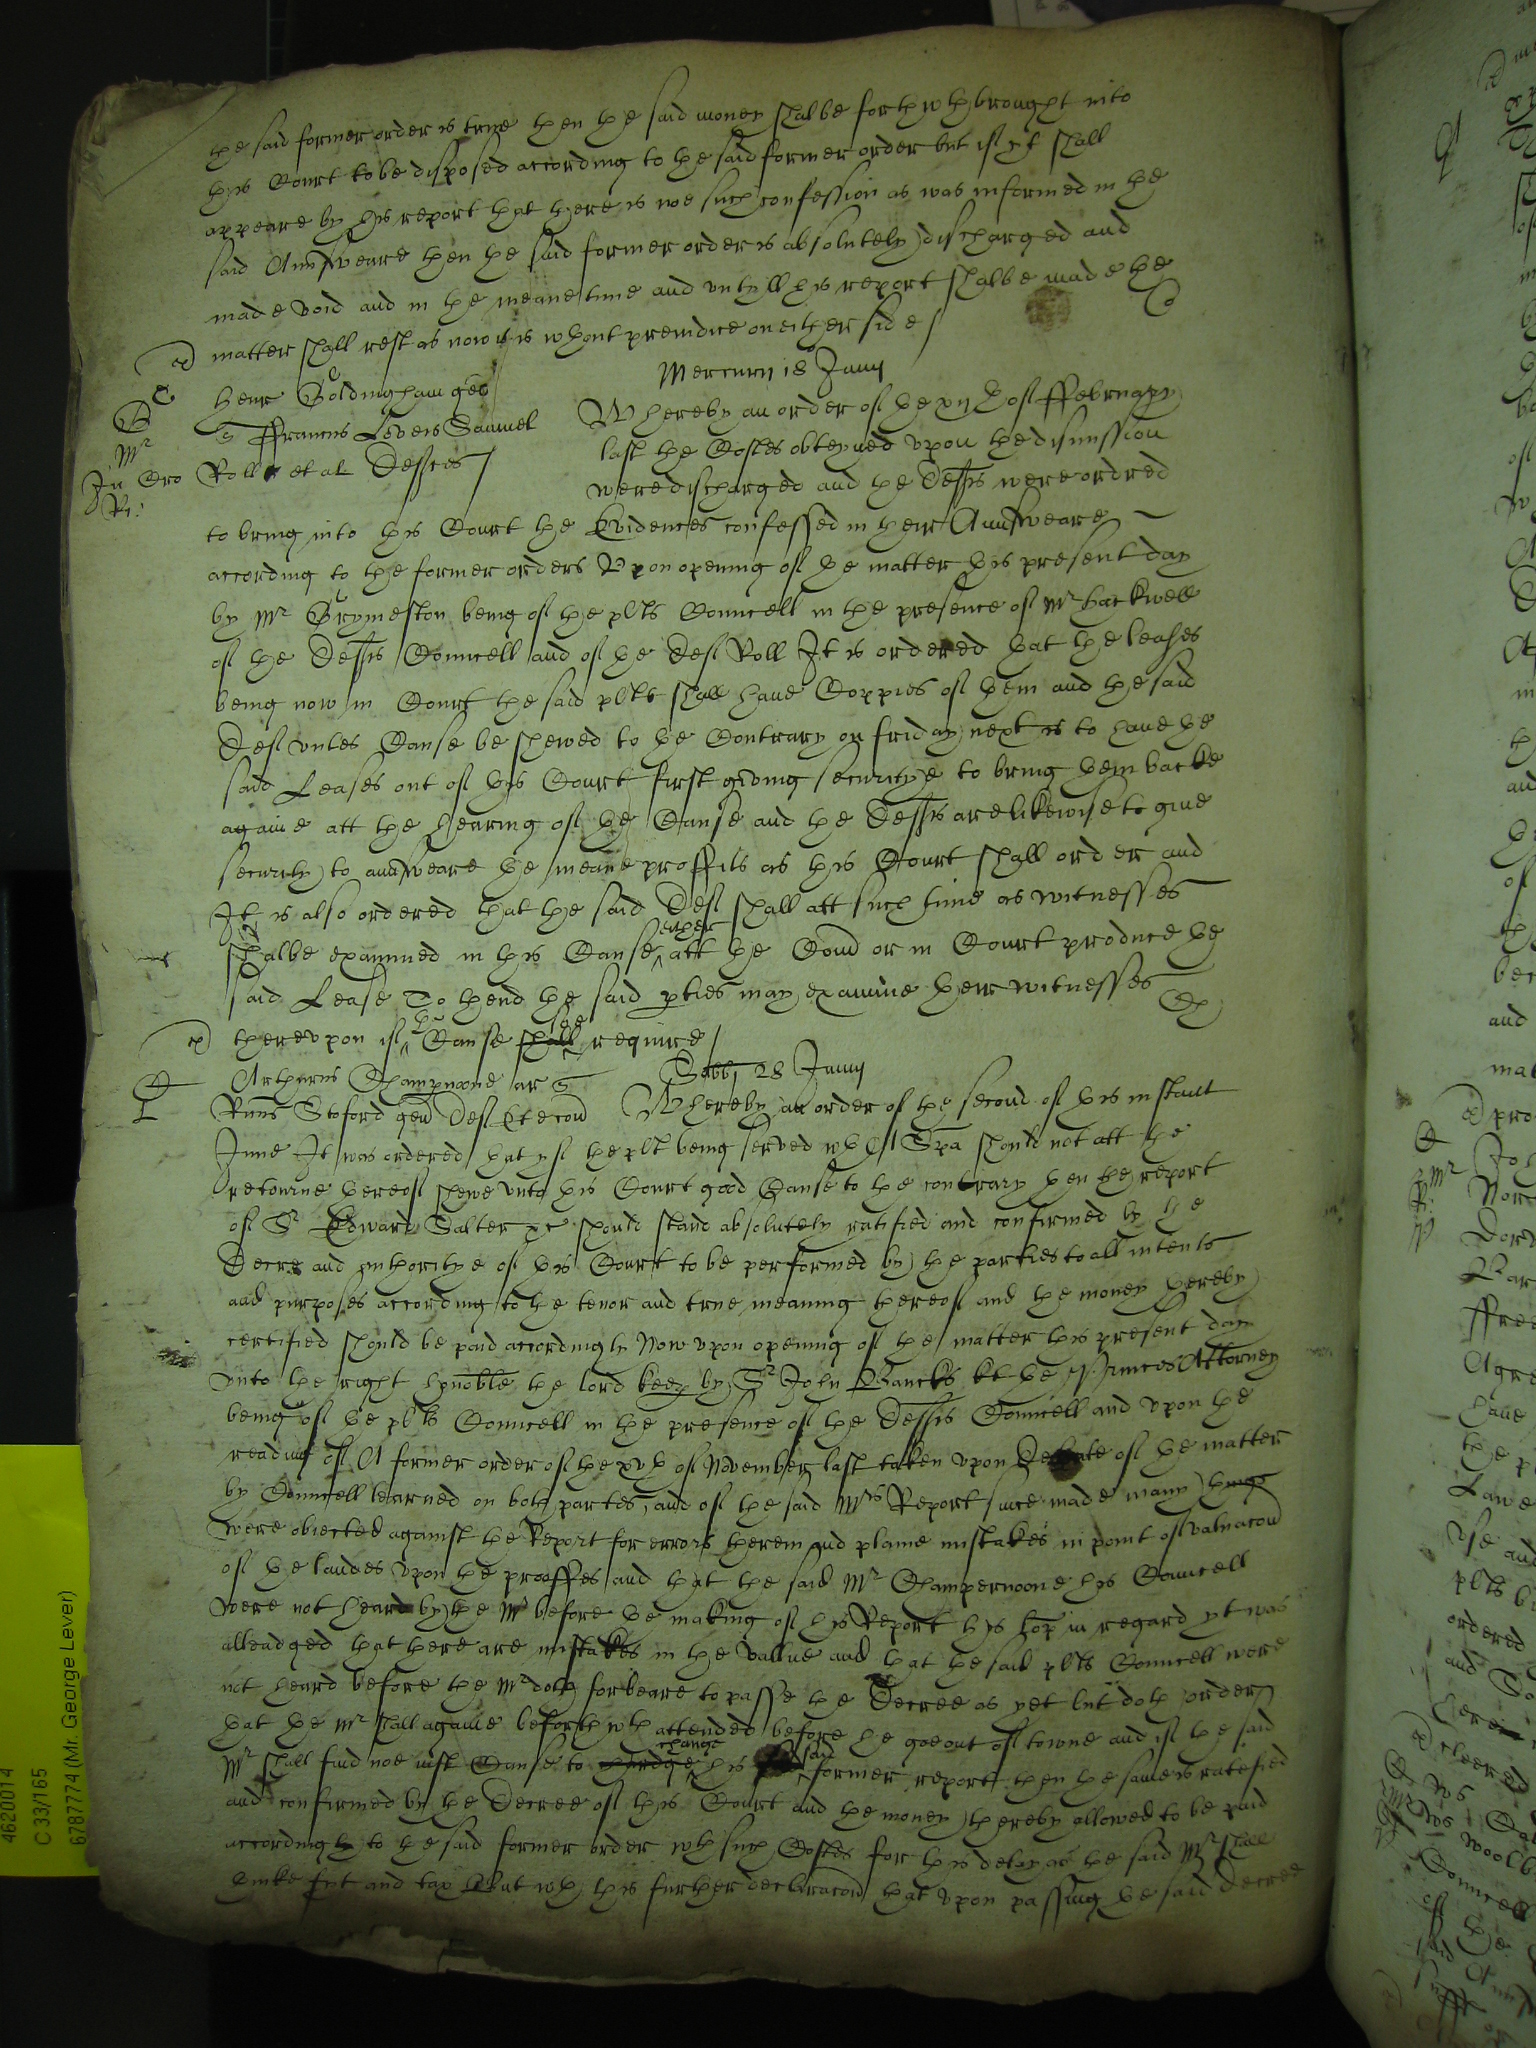 the said former order is true then the said money shalbe forthwth brought into
this Court to be disposed according to the said former order but if yt shall
appeare by his report that there is noe such confession as was informed in the
said Aunsweare then the said former order is absolutely discharged and
made void and in the meane time and untyll this report shalbe made the
matter shall rest as now it is wthout preiudice on either side /
Mercurij 18 Junij
Henr Goldingham gen
Whereby an order of the xijth of ffebruary
Mr
Franncis Levers Samuel
last the Costes obteyned upon the dismission
Roll et al Defftes /
were discharged and the Deftes were ordred
to bring into this Court the Evidences confessed in their Aunsweare
according to the former orders Upon opening of the matter this present day
by Mr Grymeston being of the plts Councell in the presence of Mr Hackwell
of the Deftes Councell and of the Def Roll It is ordered that the leases
being now in Court the said plts shall have Coppies of them and the said
Def unles Cause be shewed to the Contrary on friday next is to have the
said Leases out of this Court first giving securitye to bring them backe
againe att the hearing of the Cause and the Deftes are likewise to give
security to aunsweare the meane proffits as this Court shall order and
It is also ordered that the said Def shall att such time as witnesses
either
shalbe examined in this Cause att the Com or in Court produce the
said Lease To thend the said pties may examine their witnesses
thereupon if the Cause shall soe require /
Arthurus Champnoone ar
Sabbi 28 Junij
Stoford gen Def
Whereby an order of the second of this instant
June It was ordered that yf the plt being served wth A Spa should not att the
retourne thereof shewe unto this Court good Cause to the contrary then the report
of Sr Edward Salter &c should stand absolutely ratified and confirmed by the
Decree and authoritye of this Court to be performed by the parties to all intents
and purposes according to the tenor and true meaning thereof and the money thereby
certified should be paid accordingly Now upon opening of the matter this present day
unto the right honoble the lord keep by Sr John Banckes kt the Princes Attorney
being of the plts Councell in the presence of the Deftes Councell and upon the
reading of A former order of the xvth of November last taken upon Debate of the matter
by Councell learned on both partes, and of the said Mrs Report since made many things
were obiected against the Report for errors therein and plaine mistakes in point of valuacon
of the landes upon the prooffes and that the said Mr Champernoone his Councell
were not heard by the Mr before the making of his Report his lop in regard yt was
alleadged that there are mistakes in the vallue and that the said plts Councell were
not heard before the Mr doth forbeare to passe the Decree as yet but doth order
that the Mr shall againe be forthwth attended before he goe out of towne and if the said
change
said
Mr shall find noe iust Cause to his former report then the same is ratefied
and confirmed by the Decree of this Court and the money thereby allowed to be paid
accordingly to the said former order wth such Costes for this delay as the said Mr shall
thinke fit and tax But wth this further declaracon that upon passing the said Decree
4620014
C 33/165
6787774 (Mr. George Lever)